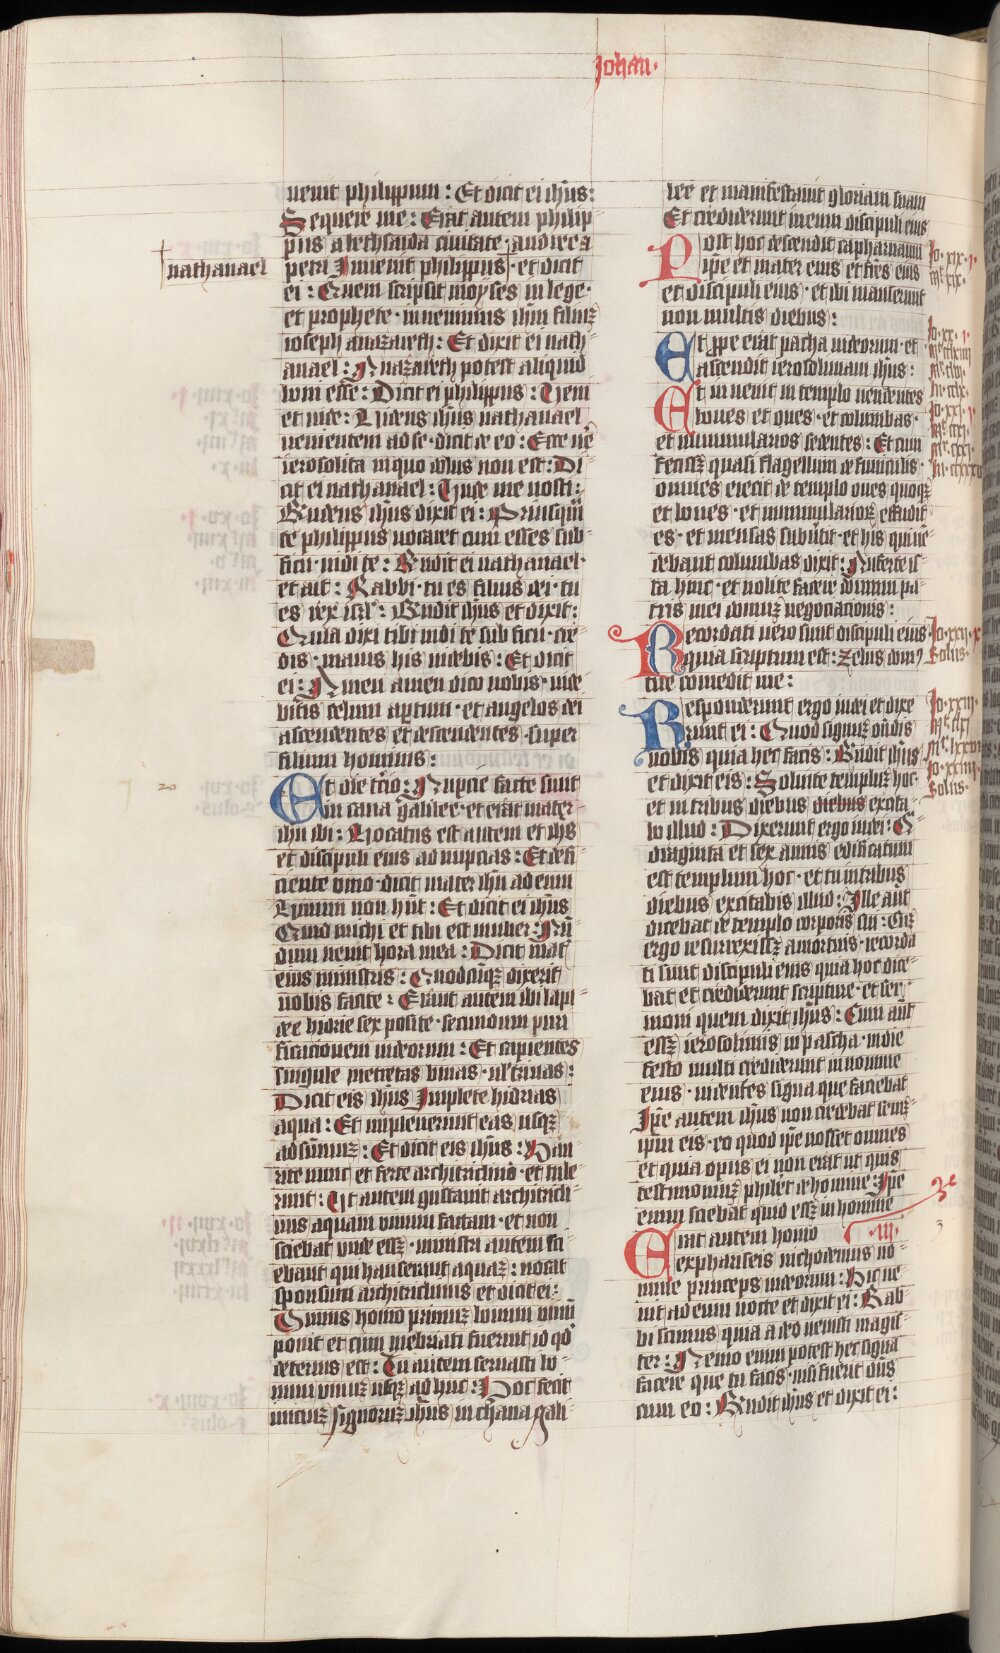 Johan·
uenit philippum : Et dicit ei ihūs :
Sequere me : Erat autem philip
pus a bethsaida ciuitate · andree ⁊
petri Inuenit philippus† · et dicit
†nathanael
ei : Quem scripsit moyses in lege ·
et prophete · inuenimus ihm filiuꝫ
ioseph a nazareth : Et dixit ei nath
anael : A nazareth potest aliquid
boni esse : Dicit ei philippus : Ueni
et uide : Uidens ihūs nathanael
uenientem ad se · dicit de eo : Ecce ue
ierosolita in quo dolus non est : Di
cit ei nathanael : Unde me nosti :
Rndens ihūs dixit ei : Priusquā
te philippus uocaret cum esses sub
ficu · uidi te : Rndit ei nathanael ·
et ait : Rabbi · tu es filius dei · tu
es rex isrl : Rndit ihūs et dixit :
Quia dixi tibi uidi te sub ficu · cre
dis · maius his uidebis : Et dicit
ei : Amen amen dico uobis · uide
bitis celum aptum · et angelos dei
ascendentes et descendentes · super
filium hominis :
Et die tcio : Nupcie facte sunt
20
in cana galilee · et erāt mater
ihu ibi : Uocatus est autem et ihs
et discipuli eius ad nupcias : Et defi
ciente vino · dicit mater ihu ad eum
Uinum non hnt : Et dicit ei ihūs
Quid michi et tibi est mulier : Nū
dum uenit hora mea : Dicit mat
eius ministris : Quodcūqꝫ dixerit
uobis facite : Erant autem ibi lapi
dee hidrie sex posite · secundum puri
ficacionem iudeorum : Et capientes
singule metretas binas · ul trinas :
Dicit eis ihūs Implete hidrias
aqua : Et impleuerunt eas usqꝫ
ad summū : Et dicit eis ihūs : Hau
rite nunc et ferte architriclino · et tule
runt : Ut autem gustauit architricli
nus aquam uinum factam · et non
sciebat unde essꝫ · ministri autem sci
ebant qui hauserant aquaꝫ : uocat
sponsum architriclinus et dicit ei :
Omnis homo primuꝫ bonum uinū
ponit et cum inebriati fuerint id qd
deterius est : Tu autem seruasti bo
num uinuꝫ usqꝫ adhuc : Hoc fecit
inicuꝫ signoruꝫ ihūs in chana gali
lee et manifestauit gloriam suam
Et crediderunt in eum discipuli eius
Post hoc descendit capharnaum
Jo · xix · j ·
ipe et mater eius et frēs eius
mr · xix ·
et discipuli eius · et ibi manserunt
non multis diebus :
Et ppe erat pacha iudeorum · et
Jo · xx · j ·
ascendit ierosolimam ihūs :
Et inuenit in templo uendentes
boues et oues · et columbas ·
Jo · xxj ·
et nummularios sedentes : Et cum
fecissꝫ quasi flagellum de funiculis ·
omnes eiecit de templo oues quoqꝫ
et boues · et nummularioꝝ effudit
es · et mensas subūtit · et his qui uē
debant columbas dixit : Auferte is
ta hinc · et nolite facere domum pa
tris mei domuꝫ negociacionis :
Recordati uero sunt discipuli eius
Jo · xxij · x
quia scriptum est : Zelus dom⁹
Solus ·
tue comedit me :
Responderunt ergo iudei et dixe
Jo · xxiij ·
runt ei : Quod signuꝫ ondis
uobis quia hec facis : Rndit ihūs
et dixit eis : Soluite templuꝫ hoc ·
Jo · xxiiij ·
Solus ·
et in tribus diebus diebus excita
bo illud : Dixerunt ergo iudei : Q
draginta et sex annis edificatum
est templum hoc · et tu in tribus
diebus excitabis illud : Ille aut
dicebat de templo corporis sui : Cuꝫ
ergo resurrexissꝫ a mortuis · recorda
ti sunt discipuli eius quia hoc dice
bat et crediderunt scripture · et ser
moni quem dixit ihūs : Cum aut
essꝫ ierosolimis in pascha · in die
festo multi crediderunt in nomine
eius · uidentes signa que faciebat
Ipe autem ihūs non credebat semꝫ
ipm eis · eo quod ipe nosset omnes
et quia opus ei non erat ut quis
testimoniuꝫ phibet de homine : Ipe
enim sciebat quid essꝫ in homine
Erat autem homo · iij ·
3
ex phariseis nichodemus no
mine princeps iudeorum : Hic ue
nit ad eum nocte et dixit ei : Rab
bi scimus quia a deo uenisti magis
ter : Nemo enim potest hec signa
facere que tu facis · nisi fuerit dns
cum eo : Rndit ihūs et dixit ei :